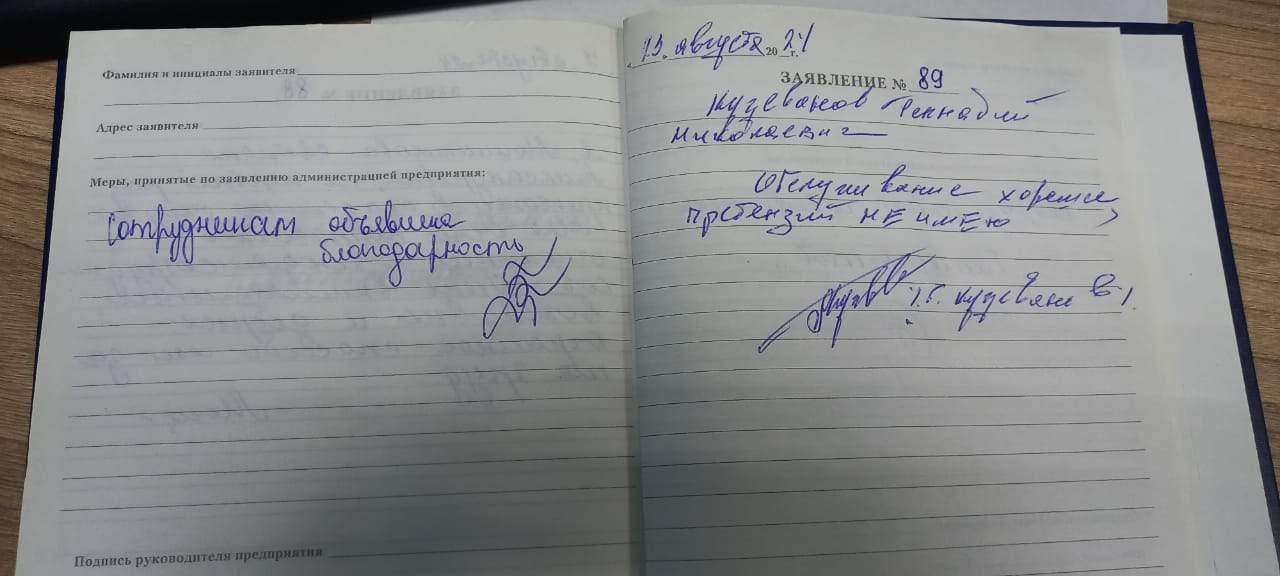 Фамилия и инициалы заявителя
Адрес заявителя
Меры, принятые по заявлению администрацией предприятия:
Сотрудникам объявила
благодарность
Подпись руководителя предприятия
13 августа 20 24 г.
ЗАЯВЛЕНИЕ № 89
Кузеванов Геннадий
Николаевич
Обслуживание хорошее
претензий НЕ имею